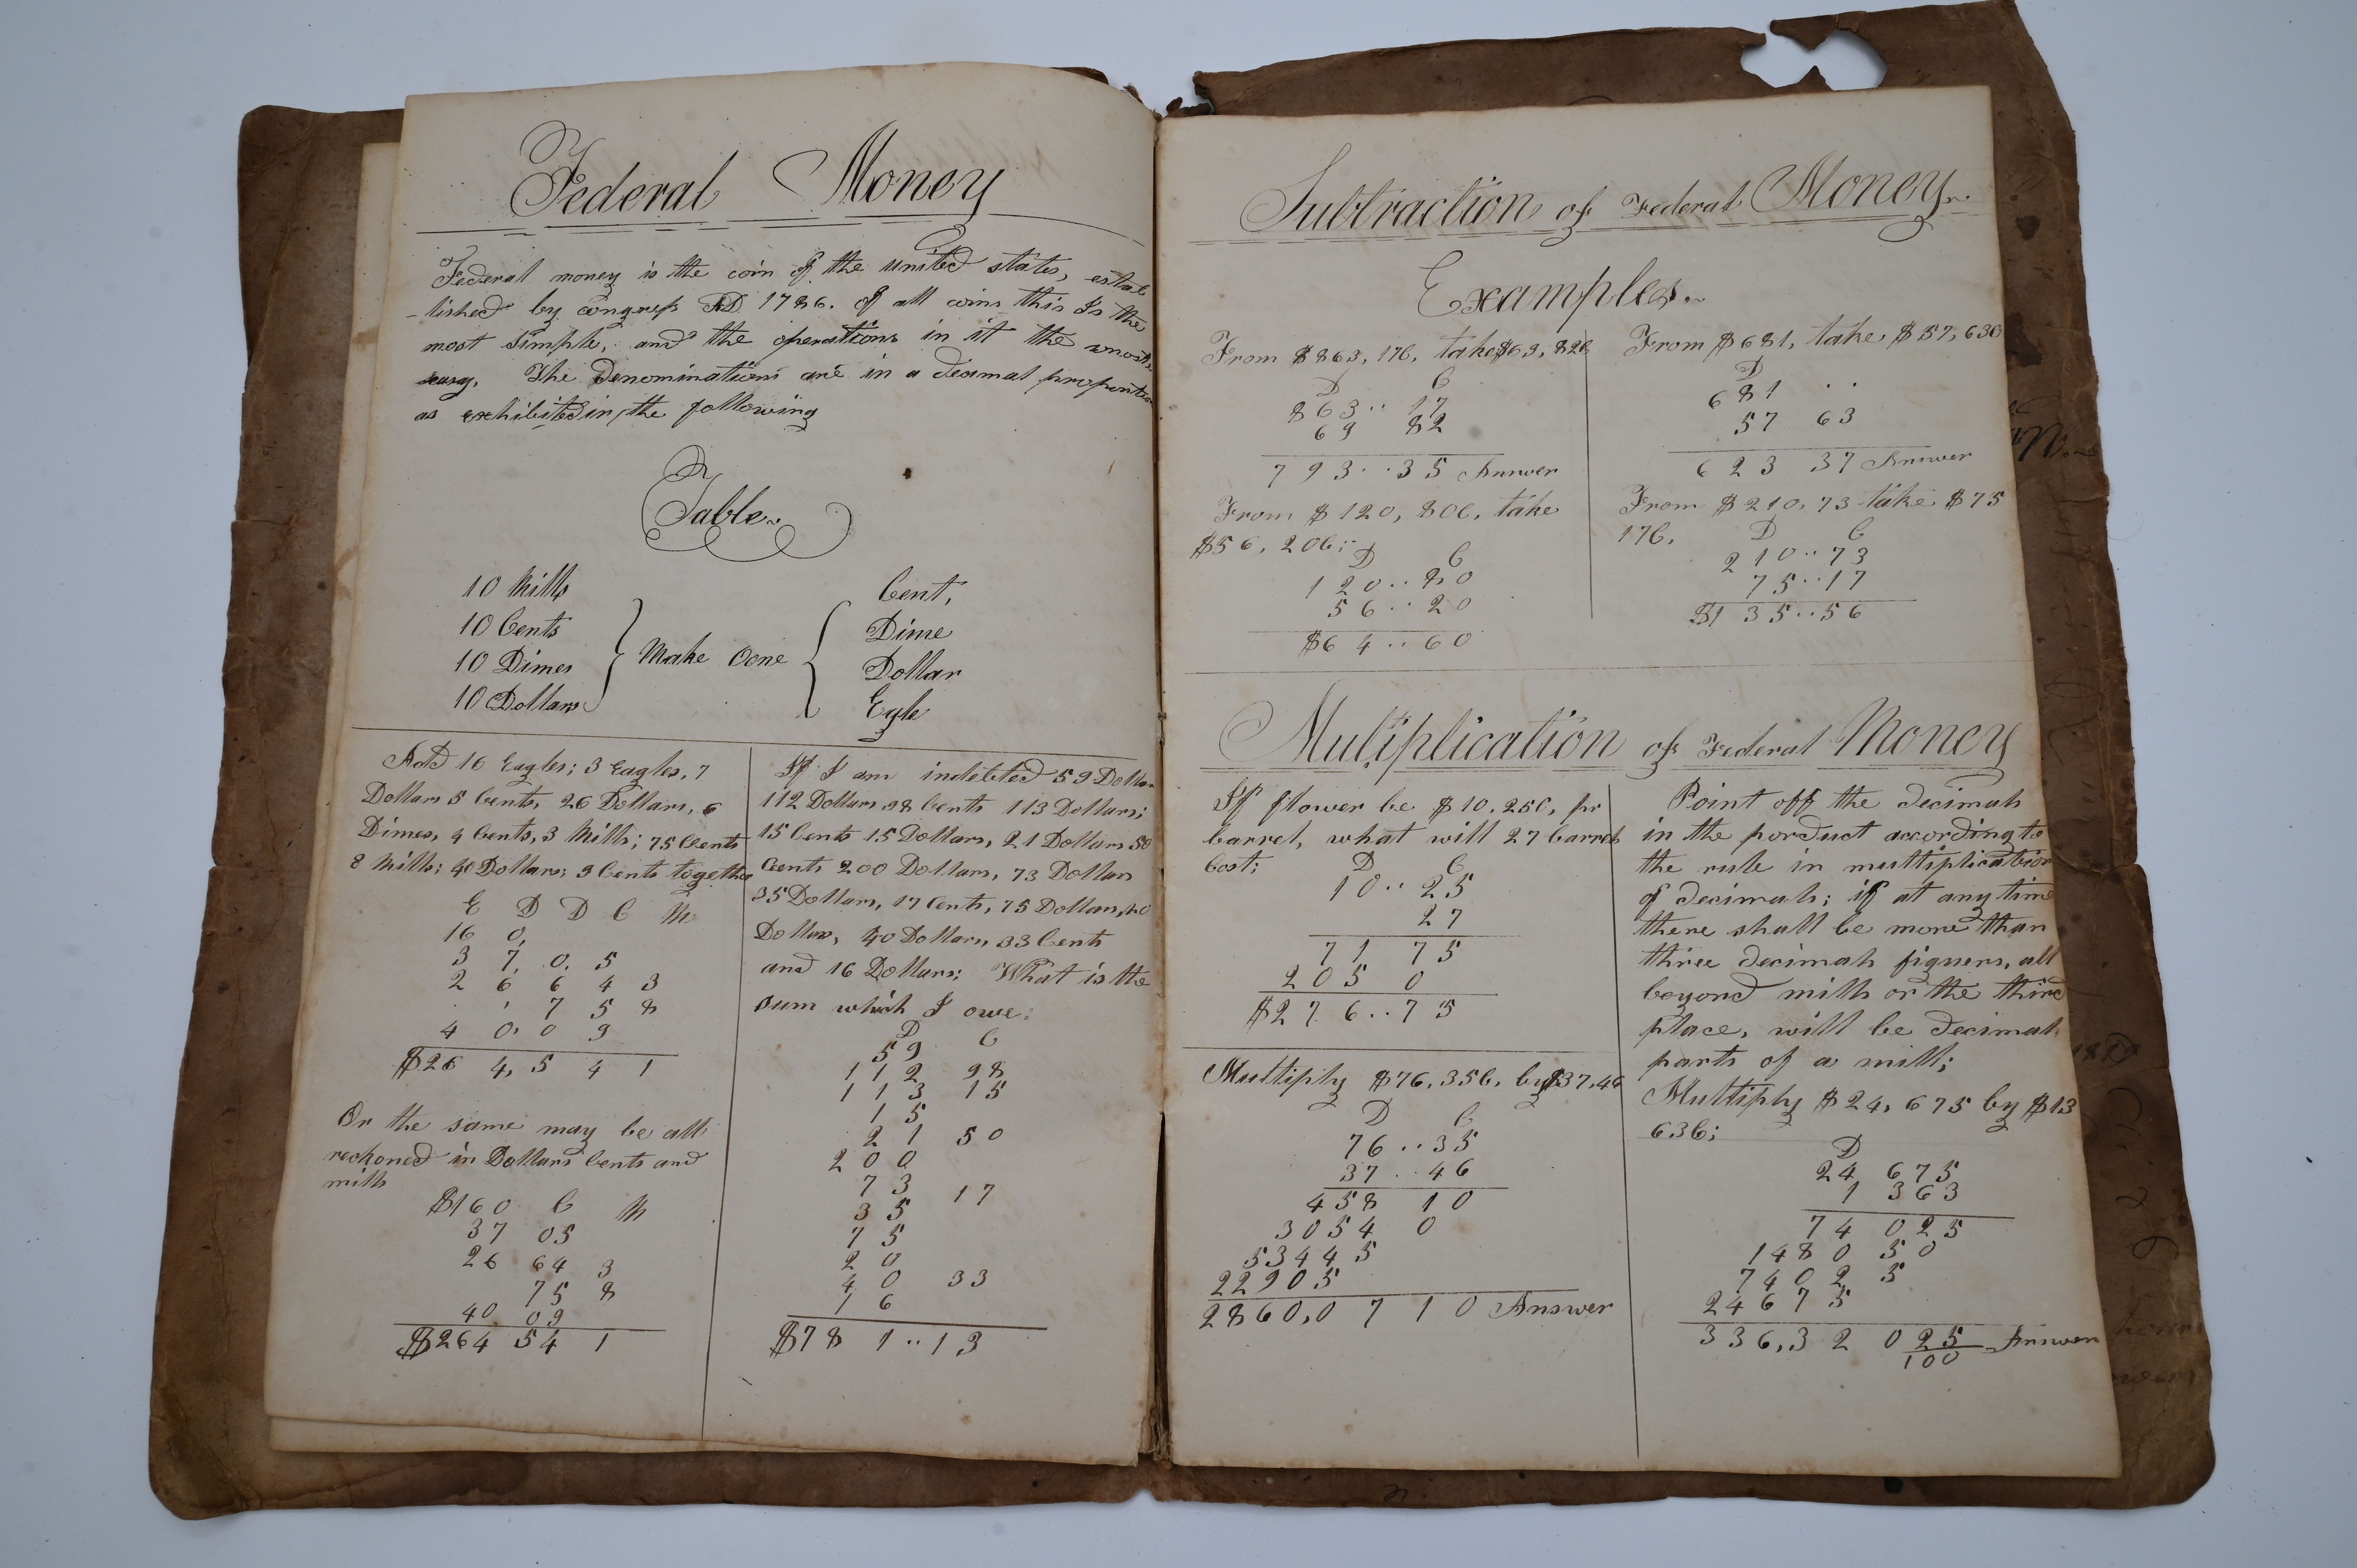 Federal Money
Federal money is the coin of the united states, estab
-lished by congress AD 1786. of all coins this Is the
most simple, and the operations in it the most
easy. The Denominations are in a decimal proportion
as exhibited in the following
Table.
10 Mills
10 Cents
10 Dimes
10 Dollars
Make Oone
Cent,
Dime
Dollar
Egle
Add 16 Eagles; 3 Eagles, 7
Dollars 5 Cents, 26 Dollars, 6
Dimes, 4 Cents, 3 Mills; 75 Cents
8 Mills; 40 Dollars; 9 Cents together
E D D C M
16 0,
3 7, 0, 5
2 6 6 4 3
. , 7 5 8
4 0, 0 9
$26 4, 5 4 1
Or the same may be all
reckoned in Dollars Cents and
mills
$160 C M
37 05
26 64 3
75 8
40 09
$264 54 1
If I am indebted 59 Dollars
112 Dollars 98 Cents 113 Dollars;
15 Cents 15 Dollars, 21 Dollars 50
Cents 200 Dollars, 73 Dollars
35 Dollars, 17 Cents, 75 Dollars, 20
Dollars, 40 Dollars, 33 Cents
and 16 Dollars; What is the
sum which I owe:
D C
59
112 98
113 15
15
21 50
200
73
35 17
75
20
40 33
16
$78 1..13
Subtraction of Federal Money.
Examples.
From $863, 17C, take $69, 82C
D C
863.. 17
69 82
793..35 Answer
From $681, take $57, 63C
D
681 ..
57 63
623 37 Answer
From $120, 80C, take
$56, 20C;
D C
120..80
56..20
$64..60
From $210, 73 take $75
17C,
D C
210..73
75..17
$135..56
Mulıplication of Federal Money
If flower be $10.25C, pr
barrel, what will 27 barrels
Cost;
D C
10..25
27
71 75
205 0
$276..75
Multiply $76, 35C, by $37, 46
D C
76..35
37..46
458 10
3054 0
53445
22905
2860,0 7 1 0 Answer
Point off the decimals
in the porduct according to
the rule in multiplication
of decimals; if at any time
there shall be more than
three decimals figuers, all
beyond mills or the third
place, will be decimal
parts of a mill;
Multiply $24, 675 by $13
63C;
D
24 675
1 363
74 025
1480 50
7402 5
24675
336,32 0 25/100 Answer